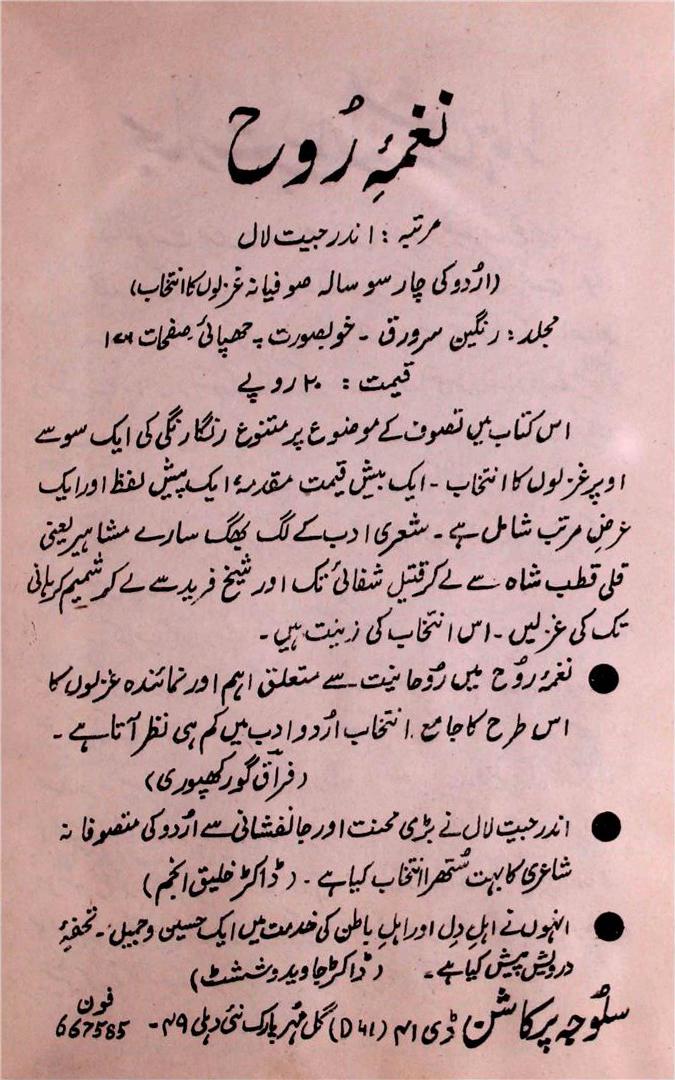 نغمۂ رُوح
مرتبہ : اندرجیت لال
(اُردو کی چار سو سالہ صوفیانہ غزلوں کا انتخاب)
مجلد: رنگین سرورق ۔ خوبصورت چھپائی صفحات ۱۲۸
قیمت : ۲۰ روپے
اس کتاب میں تصوف کے موضوع پر متنوع رنگا رنگی کی ایک سو سے
اوپر غزلوں کا انتخاب ۔ ایک بیش قیمت مقدمہ ایک پیش لفظ اور ایک
عرضِ مرتب شامل ہے۔ شعری ادب کے لگ بھگ سارے مشاہیر یعنی
قلی قطب شاہ سے لے کر قتیل شفائی تک اور شیخ فرید سے لے کر شمیم کرہانی
تک کی غزلیں ۔ اس انتخاب کی زینت ہیں ۔
● نغمۂ رُوح میں رُوحانیت سے متعلق اہم اور نمائندہ غزلوں کا
اس طرح کا جامع انتخاب اُردو ادب میں کم ہی نظر آتا ہے ۔
(فراق گورکھپوری)
● اندرجیت لال نے بڑی محنت اور جانفشانی سے اُردو کی متصوفانہ
شاعری کا بہت سُتھرا انتخاب کیا ہے ۔ (ڈاکٹر خلیق انجم)
● انہوں نے اہلِ دِل اور اہلِ باطن کی خدمت میں ایک حسین و جمیل ۔ تحفۂ
درویش پیش کیا ہے ۔ (ڈاکٹر جاوید وششٹ)
سلُوجہ پرکاشن ڈی ۴۱ (D 41) گل مُہر پارک نئی دہلی ۴۹ - فون 667585